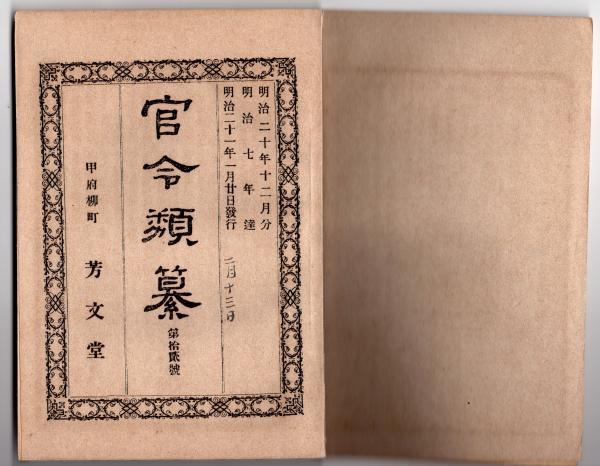 明治二十年十二月分
明治七年達
明治二十一年一月廿日發行
二月十三日
官令類纂
第拾貳號
甲府柳町
芳文堂